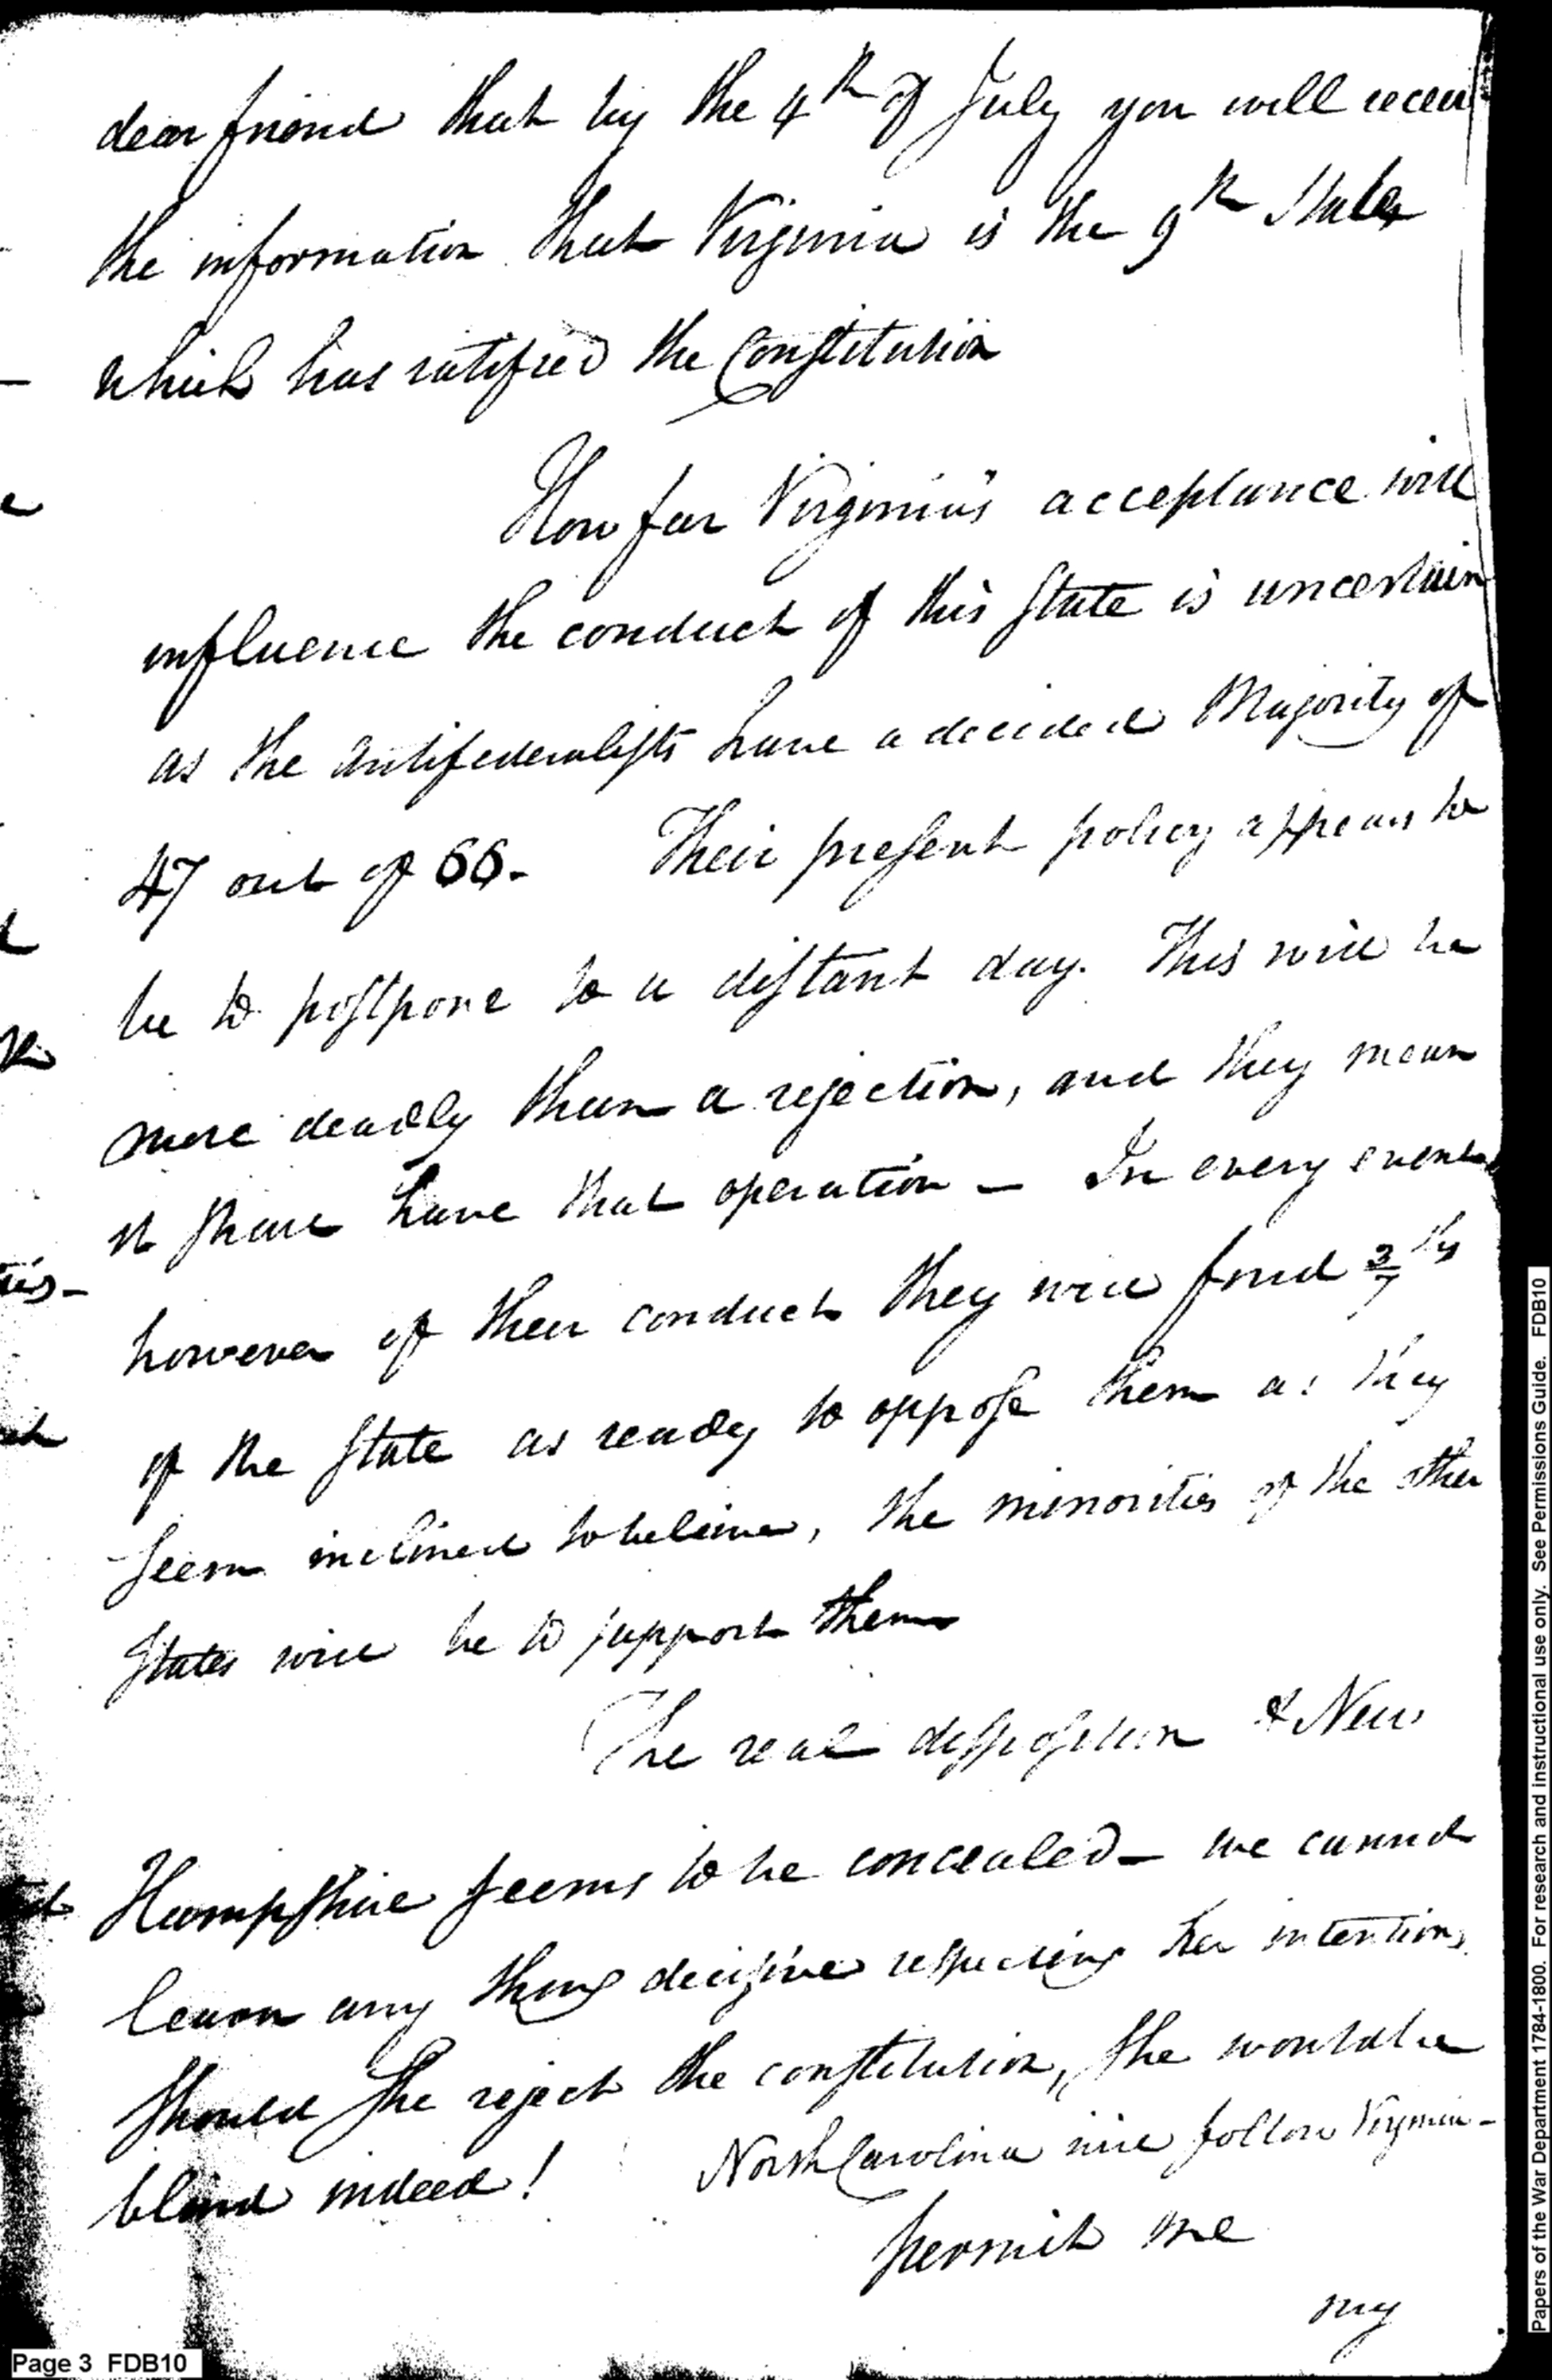 dear friend that by the 4th of July you will receive
the information that Virginia is the 9th State
which has ratified the Constitution
How far Virginia's acceptance will
influence the conduct of this State is uncertain
as the antifederalists have a decided Majority of
47 out of 66. Their present policy appears to
be to postpone to a distant day. This will be
more deadly than a rejection, and they mean
it shall have that operation — In every event
however of their conduct they will find 3/7ths
of the State as ready to oppose them as they
seem inclined to believe, the minorities of the other
States will be to support them
The real disposition of New
Hampshire seems to be concealed — we cannot
learn any thing decisive respecting her intentions
should she reject the constitution, she would be
blind indeed! North Carolina will follow Virginia —
permit me
my
Page 3 FDB10
Papers of the War Department 1784-1800. For research and instructional use only. See Permissions Guide. FDB10